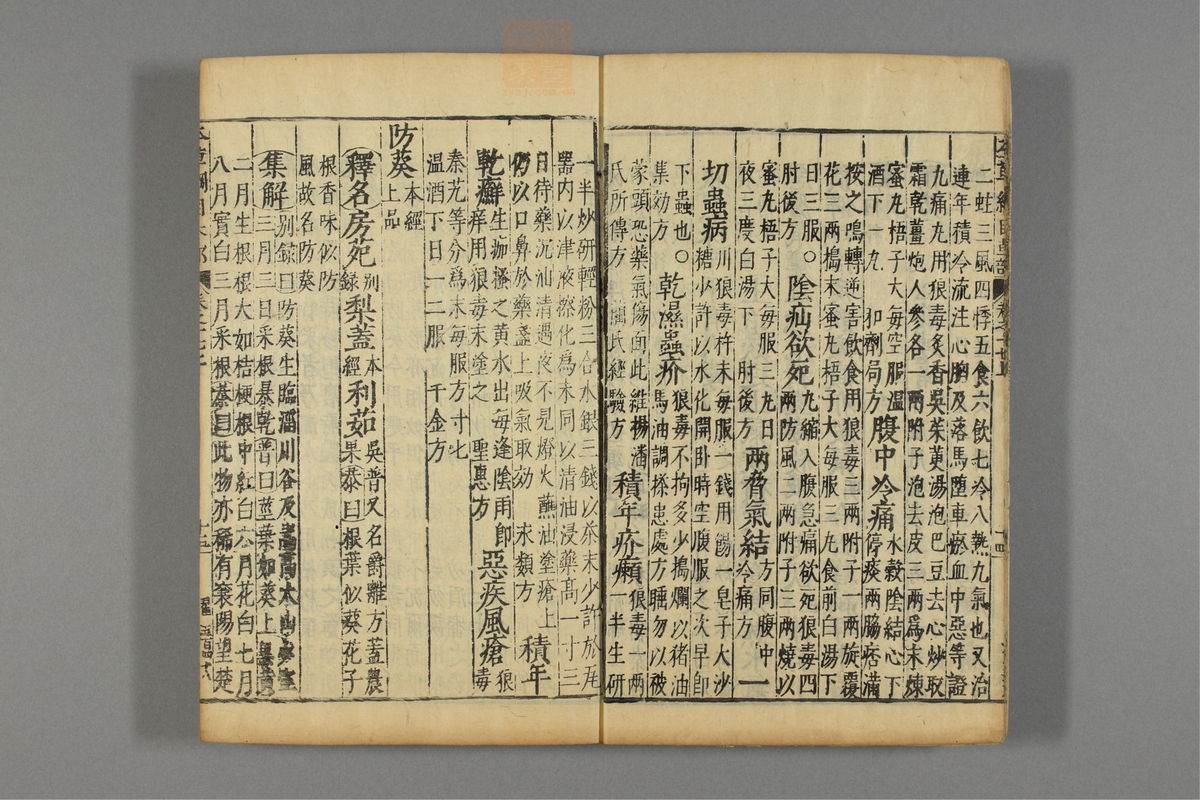 二蛀三風四悸五食六飲七冷八熱九氣也又治
連年積冷流注心胸及落馬墮車瘀血中惡等證
九痛丸用狼毒炙香吳茱萸湯泡巴豆去心炒取
霜乾薑炮人參各一兩附子泡去皮三兩爲末煉
蜜丸梧子大每空服溫
酒下一丸 和劑局方
腹中冷痛
水穀陰結心下
停痰兩腸痞滿
按之鳴轉逆害飲食用狼毒三兩附子一兩旋覆
花三兩搗末蜜丸梧子大每服三丸食前白湯下
日三服
肘後方
陰疝欲死
丸縮入腹急痛欲死狼毒四
兩防風二兩附子三兩燒以
蜜丸梧子大每服三丸日
夜三度白湯下 肘後方
兩脅氣結
方同腹中
冷痛方
一切蟲病
川狼毒杵末每服一錢用餳一皂子大沙
糖少許以水化開卧時空腹服之次早即
下蟲也
集効方
乾濕蟲疥
狼毒不拘多少搗爛以猪油
馬油調搽患處方睡勿以被
蒙頭恐藥氣傷面此維揚潘
氏所傳方 氏經驗方
積年疥癩
狼毒一兩
一半生研
一半炒研輕粉三合水銀三錢以茶末少許於瓦
器内以津液然化爲末同以清油浸藥高一寸三
日待藥沉油清遇夜不見燈火蘸油塗瘡上
仍以口鼻於藥盞上吸氣取効 永類方
積年
乾癬
生痂搔之黄水出每逢陰雨即
痒用狼毒末塗之 聖惠方
惡疾風瘡
狼毒
秦艽等分爲末每服方寸匕
溫酒下日一二服 千金方
防葵
本經
上品
釋名房苑
別
錄
梨蓋
本
經
利茹
吳普又名爵離方蓋農
果㤗曰根葉似葵花子
根香味似防
風故名防葵
集解
別録曰防葵生臨淄川谷及嵩高太山少室
三月三日采根暴乾普曰莖葉如葵上黑黄
二月生根根大如桔梗根中紅白六月花白七月
八月實白三月采根恭曰此物亦稀有襄陽望楚